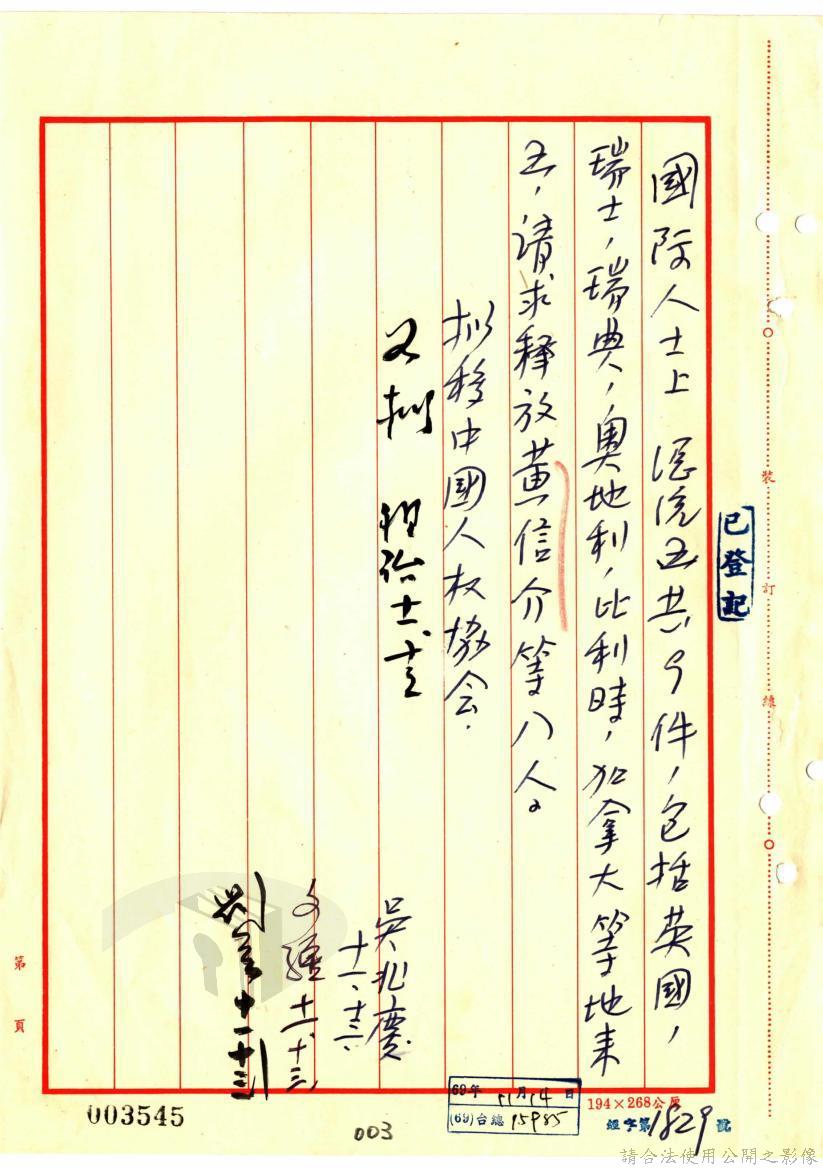 國际人士上 總統函共9件，包括英國，
瑞士，瑞典，奧地利，比利時，加拿大等地来
函，請求釋放黃信介等八人。
拟移中國人权協会．
吳兆慶
十一、十三
十一、十三
十一十三
已登記
裝
訂
線
第
頁
69年11月14日
(69)台總 15985
194×268公厘
經字第1829號
003545
003
請合法使用公開之影像